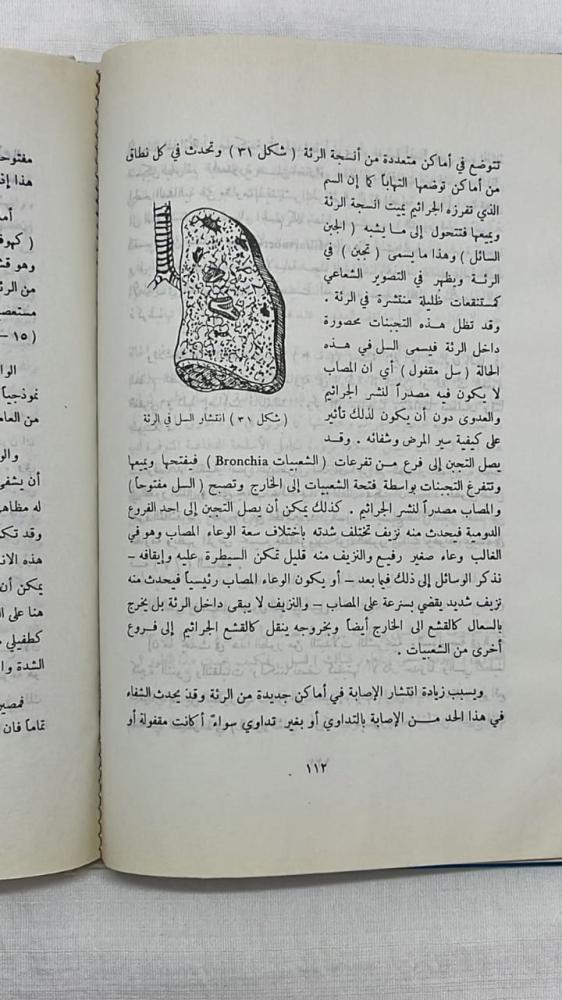 تتوضع في أماكن متعددة من أنسجة الرئة ( شكل ٣١ ) وتحدث في كل نطاق
من أماكن توضعها التهاباً كما إن السم
الذي تفرزه الجراثيم يميت انسجة الرئة
ويميعها فتتحول إلى ما يشبه ( الجبن
السائل ) وهذا ما يسمى ( تجبن ) في
الرئة ويظهر في التصوير الشعاعي
كتنقعات ظليلة منتشرة في الرئة .
وقد تظل هذه التجبنات محصورة
داخل الرئة فيسمى السل في هذه
الحالة ( سل مقفول ) أي ان المصاب
لا يكون فيه مصدراً لنشر الجراثيم
والعدوى دون أن يكون لذلك تأثير
على كيفية سير المرض وشفائه . وقد
( شكل ٣١ ) انتشار السل في الرئة
يصل التجبن إلى فرع من تفرعات ( الشعبيات Bronchia ) فيفتحها ويميعها
وتتفرغ التجبنات بواسطة فتحة الشعبيات إلى الخارج وتصبح ( السل مفتوحاً )
والمصاب مصدراً لنشر الجراثيم . كذلك يمكن أن يصل التجبن إلى احد الفروع
الدومية فيحدث منه نزيف تختلف شدته باختلاف سعة الوعاء المصاب وهو في
الغالب وعاء صغير رفيع والنزيف منه قليل تمكن السيطرة عليه وإيقافه –
نذكر الوسائل إلى ذلك فيما بعد – أو يكون الوعاء المصاب رئيسياً فيحدث منه
نزيف شديد يقضي بسرعة على المصاب – والنزيف لا يبقى داخل الرئة بل يخرج
بالسعال كالقشع الى الخارج أيضاً وبخروجه ينقل كالقشع الجراثيم إلى فروع
أخرى من الشعبيات .
ويسبب زيادة انتشار الإصابة في أماكن جديدة من الرئة وقد يحدث الشفاء
في هذا الحد من الإصابة بالتداوي أو بغير تداوي سواء أكانت مقفولة أو
١١٢
مفتوحة
هذا إذ
( كهوف
وهو قش
من الرئ
مستعصي
( ١٥ –
الوا
نموذجياً
من العام
والو
أن يشفى
له مظاهر
وقد تكو
هذه الان
يمكن أن
هنا على ا
كطفيلي
الشدة وا
فمصير
تماماً فان